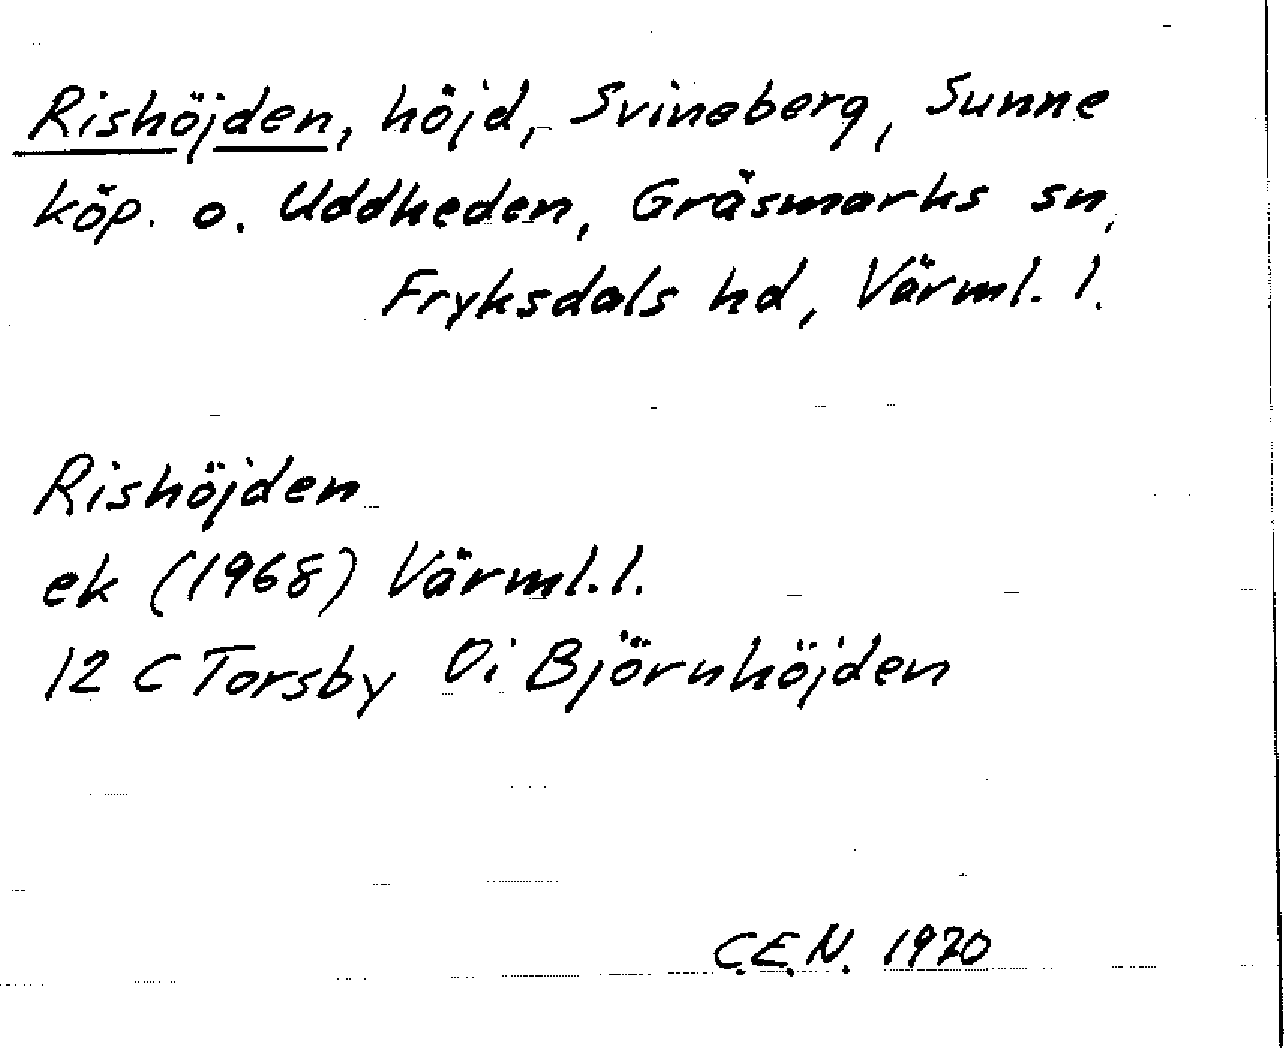 Rishöjden, höjd, Svineberg, Sunne
köp. o. Uddheden, Gräsmarks sn,
Fryksdals hd, Värml. l.
Rishöjden
ek (1968) Värml. l.
12 C Torsby 0i Björnhöjden
C.E.N. 1970